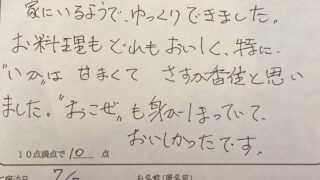 家にいるようで、ゆっくりできました。
お料理も どれもおいしく、特に
"いか"は 甘まくて さすが番佳と思い
ました。"おこぜ"も身がしまっていて、
おいしかったです。
10点満点で 10 点
7/
お名前(匿名可)